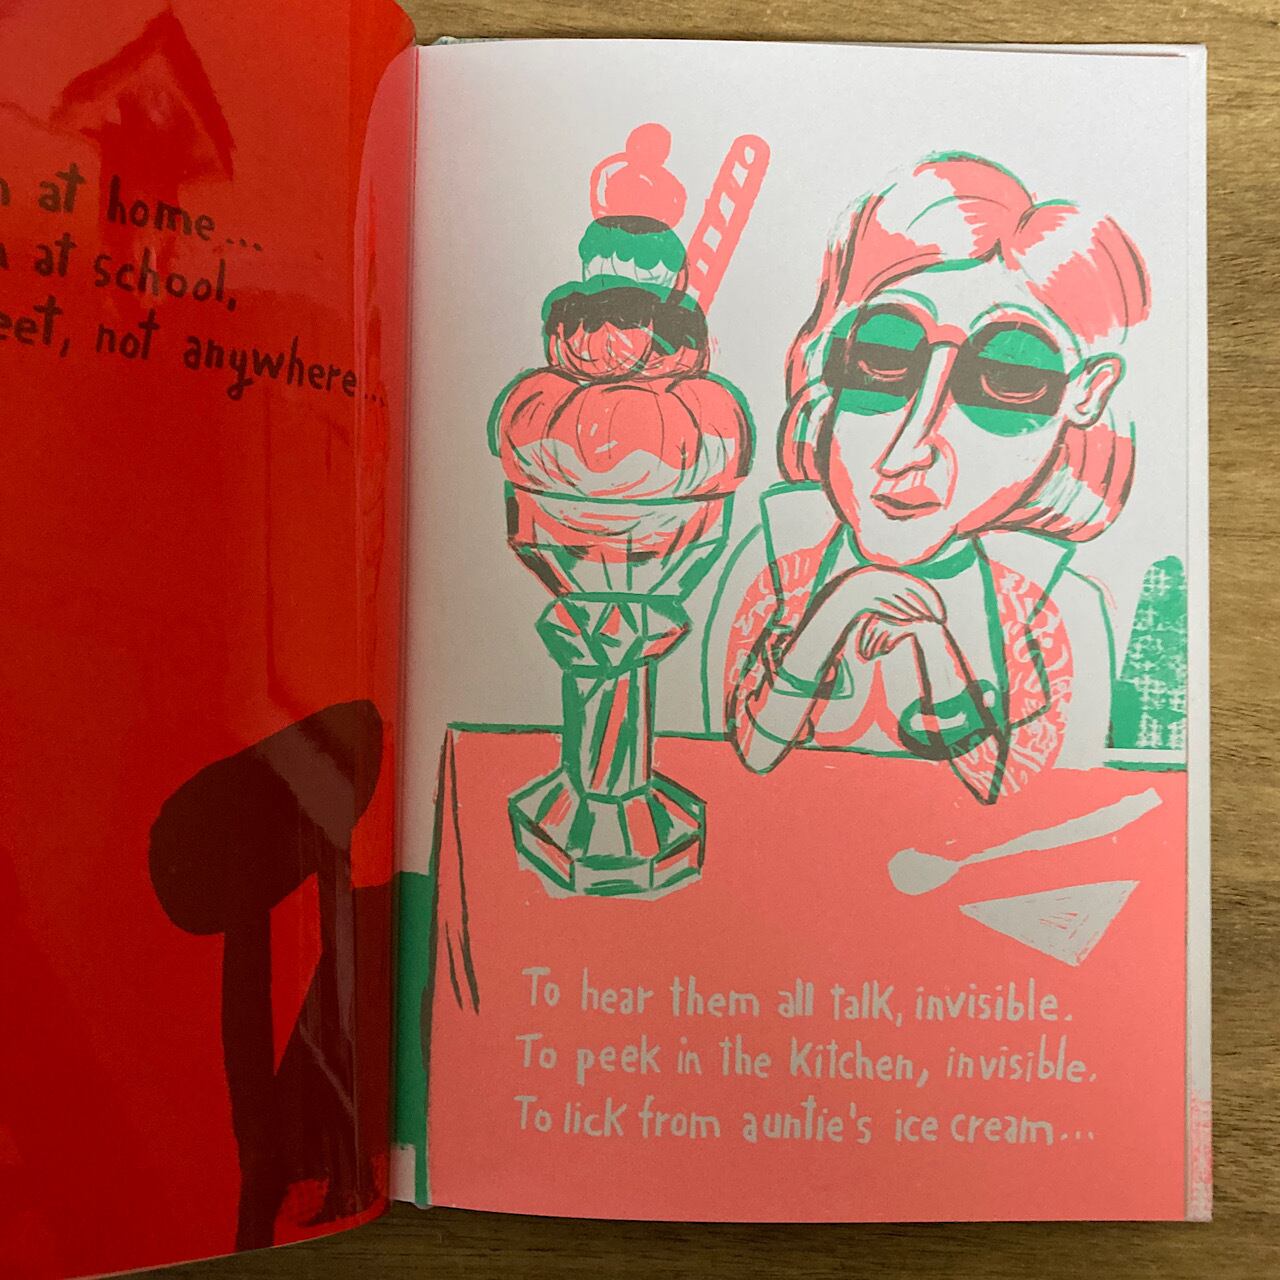 at home...
at school,
not anywhere...
To hear them all talk, invisible.
To peek in the kitchen, invisible.
To lick from auntie's ice cream...